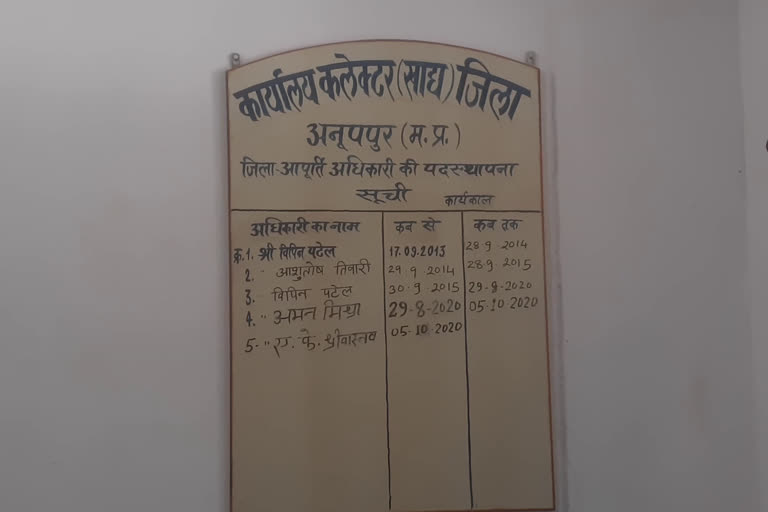 कार्यालय कलेक्टर (साद्य) जिला
अनूपपुर (म.प्र.)
जिला-आपूर्ति अधिकारी की पदस्थापना
सूची कार्यकाल
अधिकारी का नाम कब से कब तक
क्र. 1. श्री विपिन पटेल 17.09.2013 28.9.2014
2. " आशुतोष तिवारी 29.9.2014 28.9.2015
3. विपिन पटेल 30.9.2015 29-8-2020
4. " अमन मिश्रा 29-8-2020 05.10.2020
5- " एम. के. श्रीवास्तव 05.10.2020